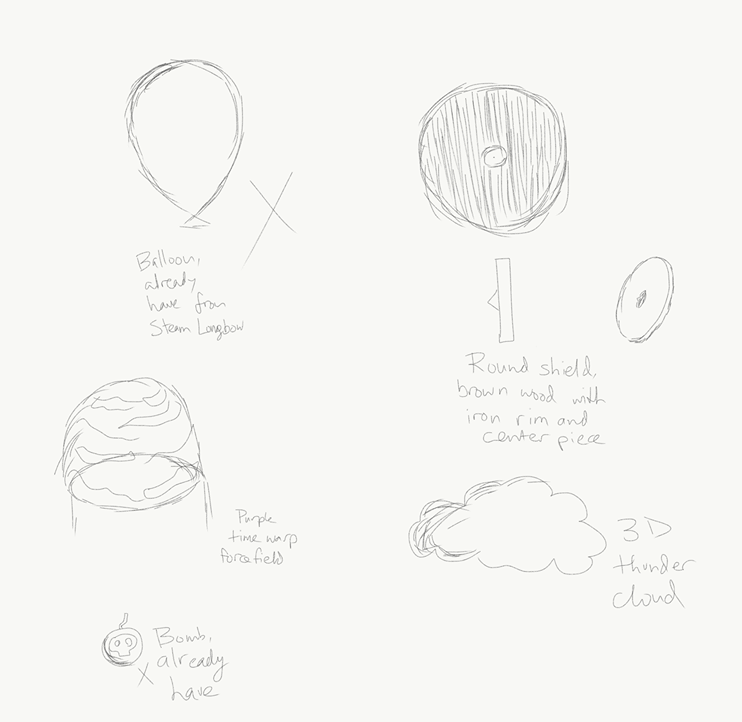 Balloon,
already
have from
Steam Longbow
Round shield,
brown wood with
iron rim and
center piece
Purple
time warp
forcefield
3D
thunder
cloud
Bomb,
already
have